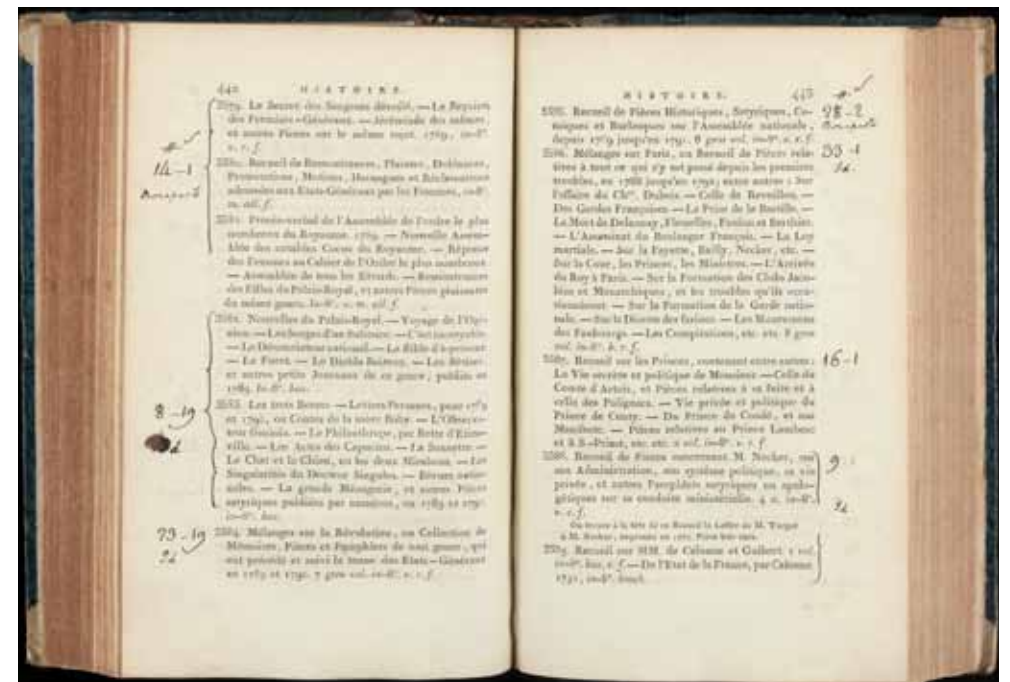 442 HISTOIRE.
3579. Le Secret des Seigneurs dévoilé. — Le Requiem
des Fermiers-Généraux. — Jérémiade des mêmes,
et autres Pièces sur le même sujet. 1789, in-8°.
v. r. f.
3580. Recueil de Remontrances, Plaintes, Doléances,
Protestations, Motions, Harangues et Réclamations
adressées aux Etats-Généraux par les Femmes, in-8°.
m. all. f.
3581. Procès-verbal de l'Assemblée de l'ordre le plus
nombreux du Royaume. 1789. — Nouvelle Assem-
blée des notables Cocus du Royaume. — Réponse
des Femmes au Cahier de l'Ordre le plus nombreux.
— Assemblée de tous les — Remontrances
des Filles du Palais-Royal, et autres Pièces plaisantes
du même genre. in-8°. v. m. all. f.
3582. Nouvelles du Palais-Royal. — Voyage de l'Opi-
nion. — — C'est incroyable.
— Le Dénonciateur national. — La Bible d'à-présent.
— Le Furet. — Le Diable Boiteux. —
et autres petits Journaux de ce genre, publiés en
1789. in-8°. bas.
3583. Les trois Bossus. — Lettres Persanes, pour 1789
et 1790, ou Contes de la mère Boby. — L'Observa-
teur féminin. — Le Philanthrope, par
ville. — Les Actes des Capucins. — La Sonnette. —
Le Chat et le Chien, ou les deux Mirabeau. — Les
Singularités du Docteur Singulier. — Etrennes natio-
nales. — La grande Ménagerie, et autres Pièces
satyriques publiées par numéros, en 1789 et 1790.
in-8°. bas.
3584. Mélanges sur la Révolution, ou Collection de
Mémoires, Pièces et Pamphlets de tout genre, qui
ont précédé et suivi la tenue des Etats-Généraux
en 1789 et 1790. 7 gros vol. in-8°. v. r. f.
14-1
8-19
73-19
HISTOIRE. 443
3585. Recueil de Pièces Historiques, Satyriques, Co-
miques et Burlesques sur l'Assemblée nationale,
depuis 1789 jusqu'en 1791. 6 gros vol. in-8°. v. r. f.
3586. Mélanges sur Paris, ou Recueil de Pièces rela-
tives à tout ce qui s'y est passé depuis les premiers
troubles, en 1788 jusqu'en 1791; entre autres : Sur
l'affaire du Ch<sup>er</sup>. Dubois. — Celle de Reveillon. —
Des Gardes Françoises. — La Prise de la Bastille. —
La Mort de Delaunay, Flesselles, Foulon et Berthier.
— L'Assassinat du Boulanger François. — La Loy
martiale. — Sur la Fayette, Bailly, Necker, etc. —
Sur la Cour, les Princes, les Ministres. — L'Arrivée
du Roy à Paris. — Sur la Formation des Clubs Jaco-
bins et Monarchiques, et les troubles qu'ils occa-
sionnèrent. — Sur la Formation de la Garde natio-
nale. — Sur la Disette des farines. — Les Mouvemens
des Faubourgs. — Les Conspirations, etc. etc. 8 gros
vol. in-8°. b. r. f.
3587. Recueil sur les Princes, contenant entre autres :
La Vie secrète et politique de Monsieur. — Celle du
Comte d'Artois, et Pièces relatives à sa fuite et à
celle des Polignacs. — Vie privée et politique du
Prince de Conty. — Du Prince de Condé, et son
Manifeste. — Pièces relatives au Prince Lambesc
et à S.-Priest, etc. etc. 2 vol. in-8°. v. r. f.
3588. Recueil de Pièces concernant M. Necker, sur
son Administration, son système politique, sa vie
privée, et autres Pamphlets satyriques ou apolo-
gétiques sur sa conduite ministérielle. 4 v. in-8°.
v. r. f.
On trouve à la tête de ce Recueil la Lettre de M. Turgot
à M. Necker, imprimée en Pièce très-rare.
3589. Recueil sur MM. de Calonne et Guibert. 2 vol.
in-8°. bas. r. f. — De l'Etat de la France, par Calonne.
1791, in-8°. broch.
98-2
33-1
16-1
9